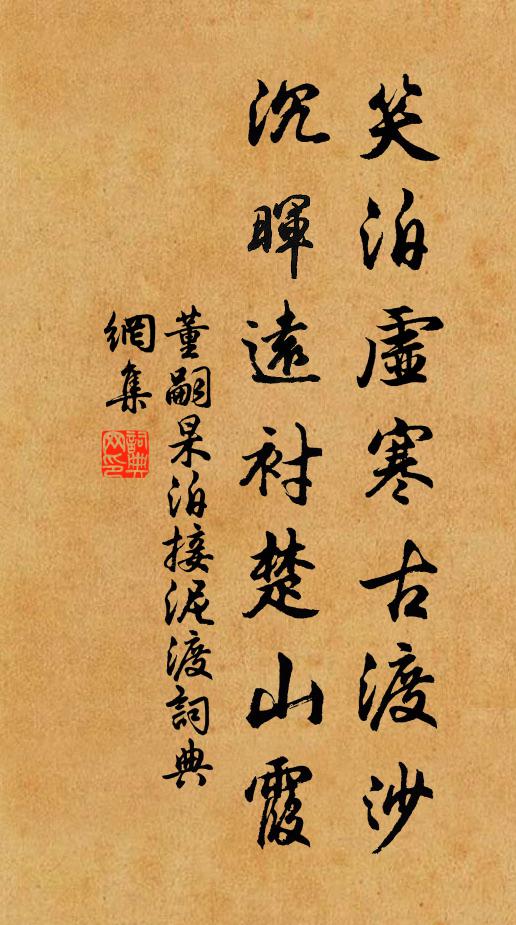 笑泊虛寒古渡沙
沉暉遠襯楚山霞
董嗣杲泊接泥渡詞典
網集
詞典
网印